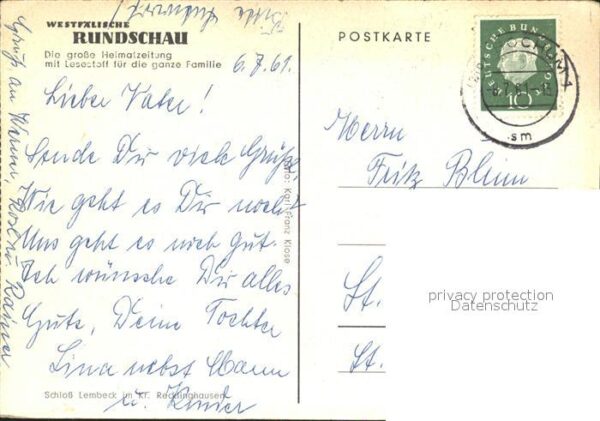 Bitte Antwort!
WESTFÄLISCHE
RUNDSCHAU
Die große Heimatzeitung
mit Lesestoff für die ganze Familie
6.7.61.
Lieber Vater!
Sende Dir viele Grüße.
Wie geht es Dir noch?
Uns geht es noch Gut.
Ich wünsche Dir alles
Gute, Deine Tochter
Lina nebst Mann
u. Kinder
Schloß Lembeck im Kr. Recklinghausen
Gruß an Werner, Rosi u. Rainer
Foto: Karl-Franz Klose
POSTKARTE
DEUTSCHE BUNDESPOST
10
BOCHUM 1
6.7.61
sm
Herrn
Fritz Blum
St.
St.
privacy protection
Datenschutz